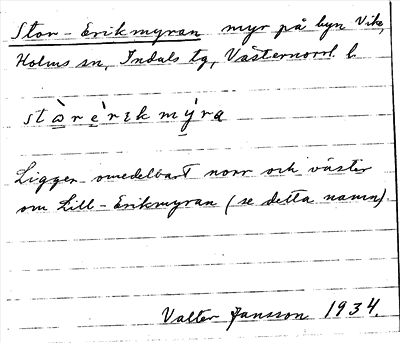 Stor-Erikmyran myr på byn Vike,
Holms sn, Indals tg, Västernorrl. l.
stò̱rè̱rɪkmý̱ra
Ligger omedelbart norr och väster
om Lill-Erikmyran (se detta namn).
Valter Jansson 1934.